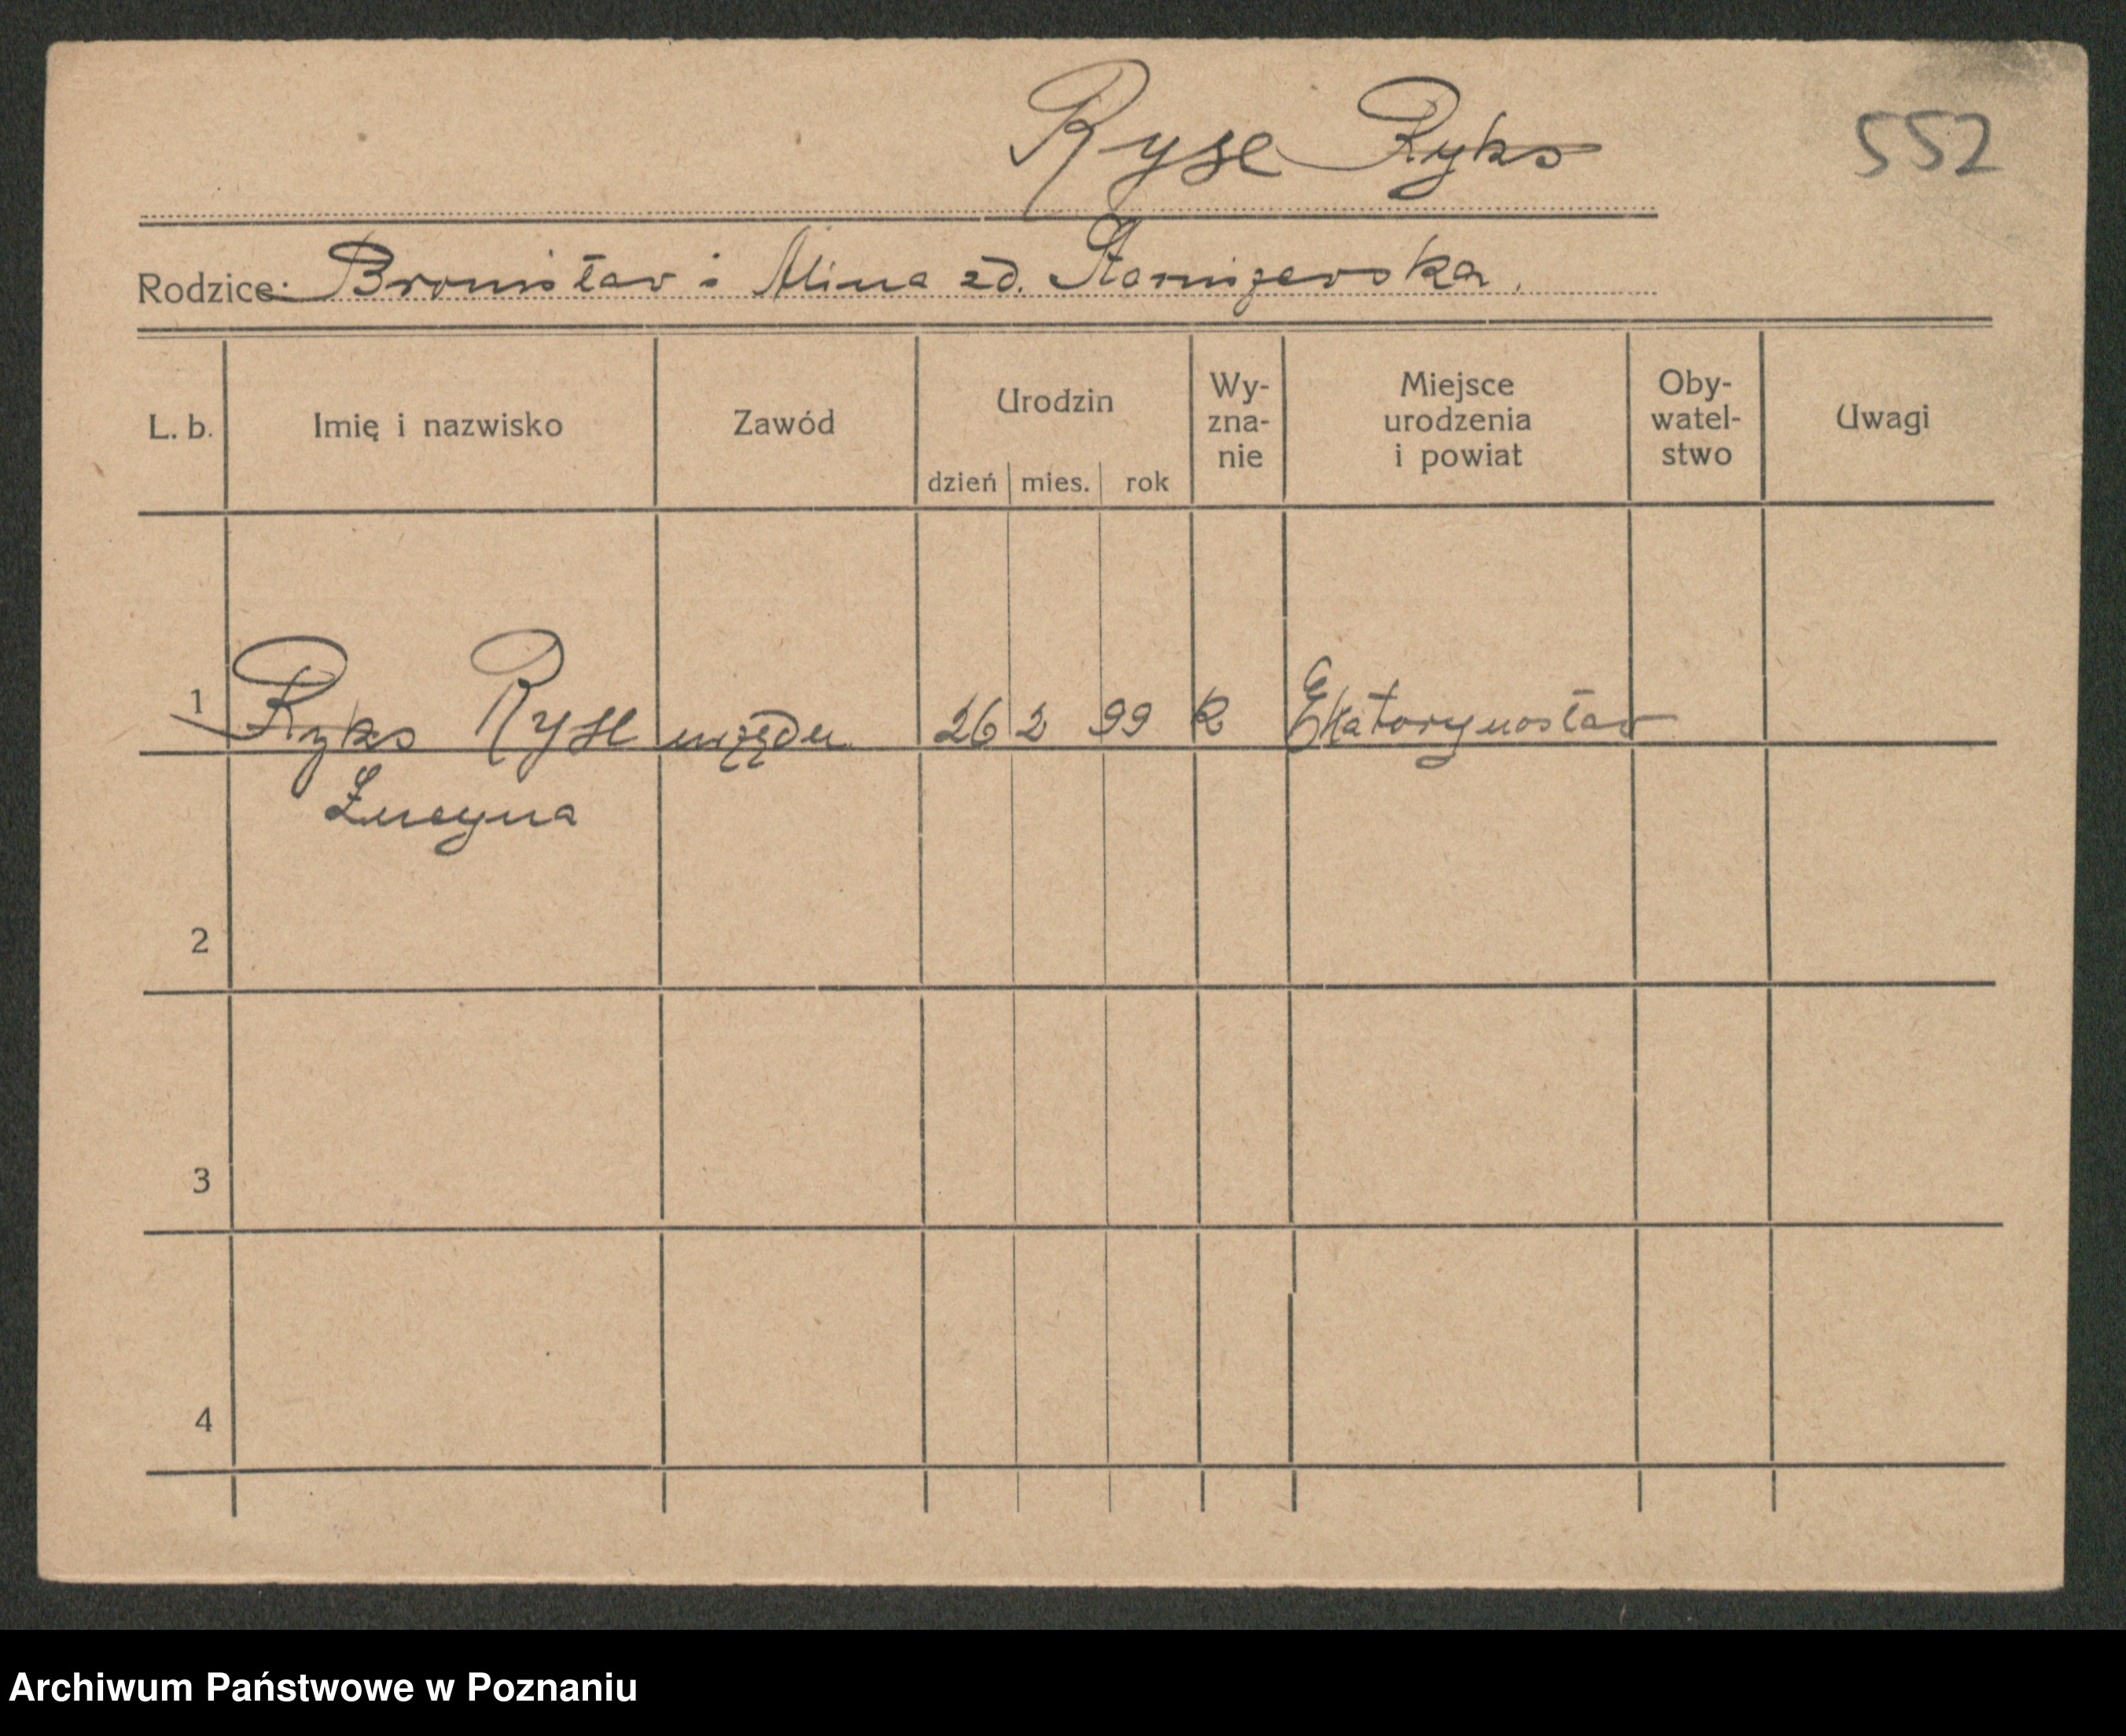 Ryse Ryks 552
Rodzice: Bronisław i Alina zd. Staniszewska.
L. b. Imię i nazwisko Zawód Urodzin dzień mies. rok Wy- zna- nie Miejsce urodzenia i powiat Oby- watel- stwo Uwagi
1 Ryks Ryse urzędn. 26 2 99 k Ekatorynosław
Lucyna
2
3
4
Archiwum Państwowe w Poznaniu